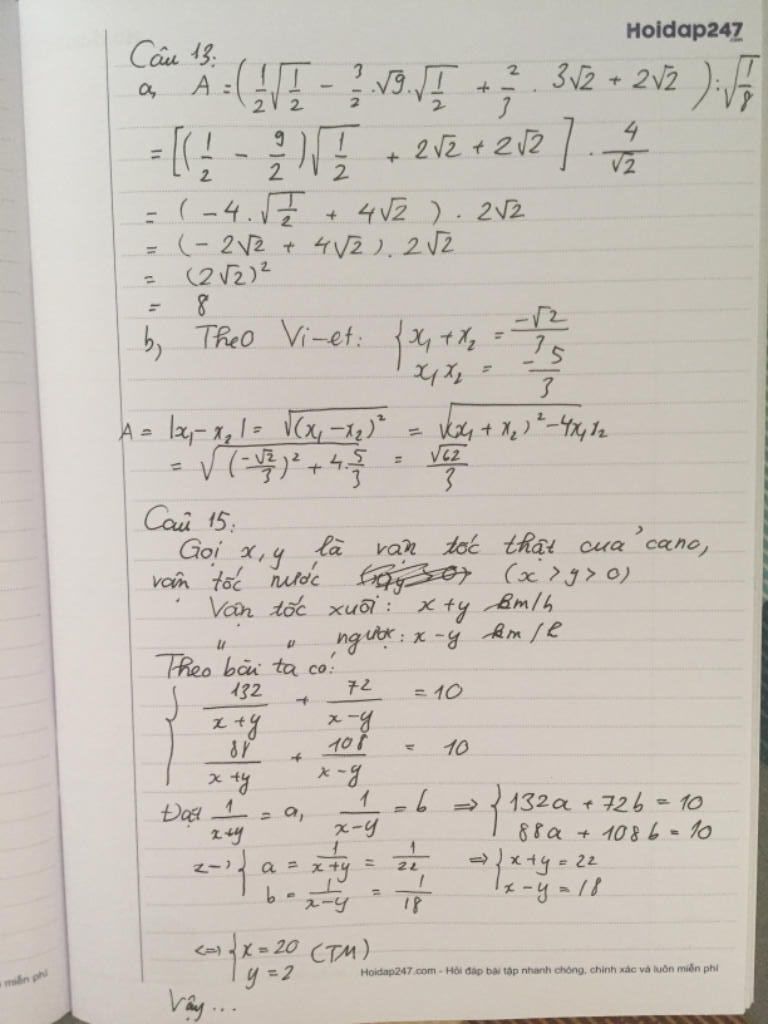 Hoidap247.com
Câu 13:
a, A = (1/2 √(1/2) - 3/2 . √9 . √(1/2) + 2/3 . 3√2 + 2√2) : √(1/8)
= [(1/2 - 9/2) √(1/2) + 2√2 + 2√2] . 4/√2
= (-4 . √(1/2) + 4√2) . 2√2
= (-2√2 + 4√2) . 2√2
= (2√2)²
= 8
b, Theo Vi-et: { x₁ + x₂ = -√2/3
x₁x₂ = -5/3
A = |x₁ - x₂| = √((x₁ - x₂)²) = √((x₁ + x₂)² - 4x₁x₂)
= √((-√2/3)² + 4.5/3) = √62/3
Câu 15:
Gọi x, y là vận tốc thật của cano,
vận tốc nước (x > y > 0)
Vận tốc xuôi: x+y km/h
" " ngược: x-y km/h
Theo bài ta có:
{ 132/(x+y) + 72/(x-y) = 10
88/(x+y) + 108/(x-y) = 10
Đặt 1/(x+y) = a, 1/(x-y) = b => { 132a + 72b = 10
88a + 108b = 10
=> { a = 1/(x+y) = 1/22 => { x+y = 22
b = 1/(x-y) = 1/18 x-y = 18
<=> { x = 20 (TM)
y = 2
Vậy...
Hoidap247.com - Hỏi đáp bài tập nhanh chóng, chính xác và luôn miễn phí
miễn phí